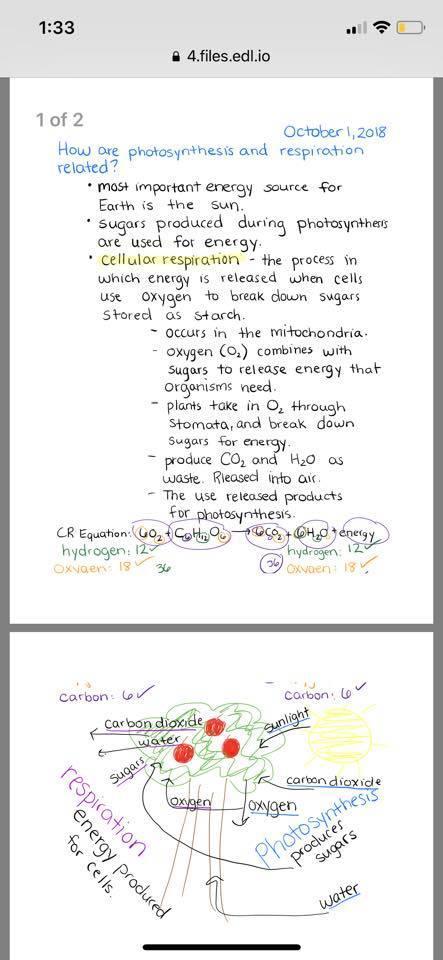 1:33
4.files.edl.io
1 of 2
October 1, 2018
How are photosynthesis and respiration
related?
• most important energy source for
Earth is the sun.
• sugars produced during photosynthesis
are used for energy.
• cellular respiration - the process in
which energy is released when cells
use oxygen to break down sugars
stored as starch.
- occurs in the mitochondria.
- oxygen (O₂) combines with
sugars to release energy that
organisms need.
- plants take in O₂ through
stomata, and break down
sugars for energy.
- produce CO₂ and H₂O as
waste. Rleased into air.
- The use released products
for photosynthesis.
CR Equation: 6O₂ + C₆H₁₂O₆ → 6CO₂ + 6H₂O + energy
hydrogen: 12 ✓ hydrogen: 12 ✓
oxygen: 18 ✓ 36 36 oxygen: 18 ✓
carbon: 6 ✓ carbon: 6 ✓
carbon dioxide
sunlight
water
sugars
carbon dioxide
oxygen
oxygen
respiration
energy produced
for cells.
Photosynthesis
produces
sugars
water